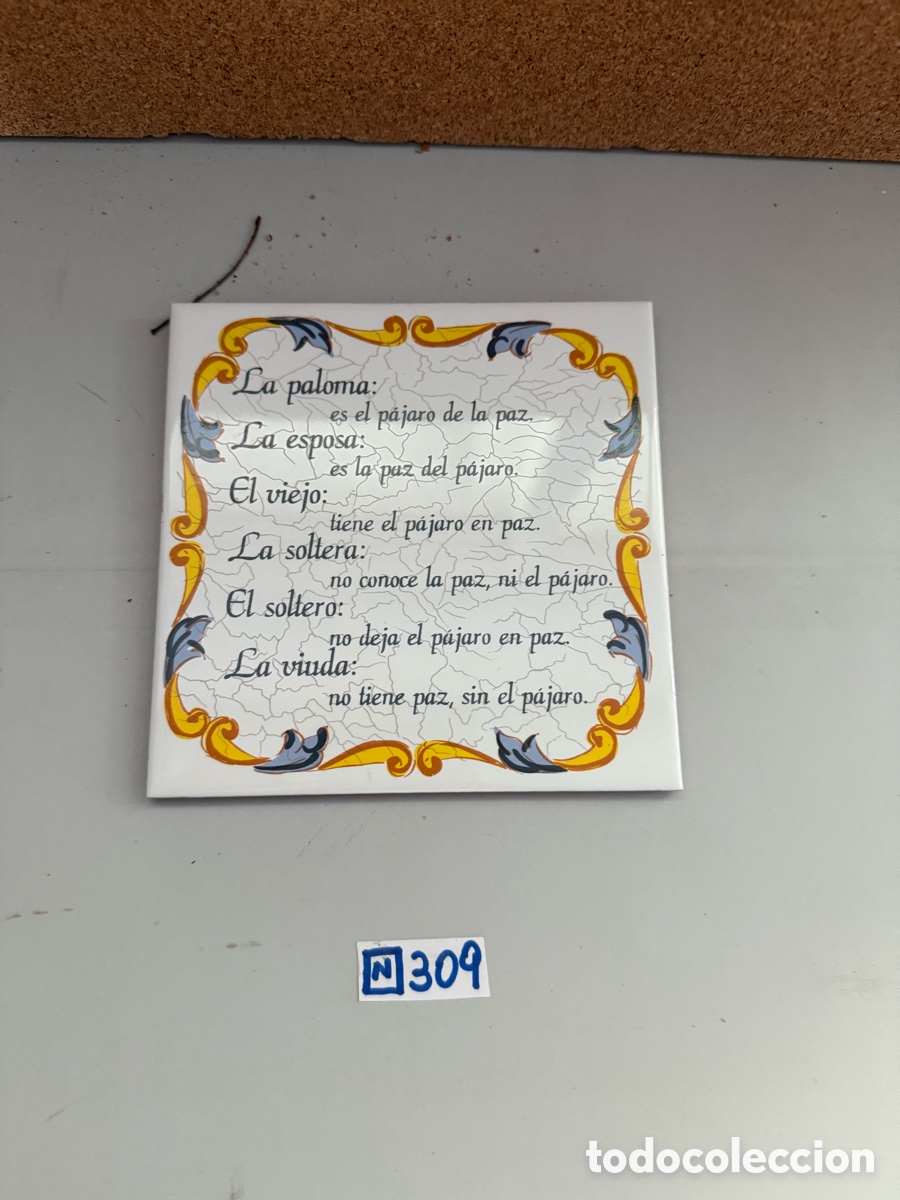 La paloma:
es el pájaro de la paz.
La esposa:
es la paz del pájaro.
El viejo:
tiene el pájaro en paz.
La soltera:
no conoce la paz, ni el pájaro.
El soltero:
no deja el pájaro en paz.
La viuda:
no tiene paz, sin el pájaro.
N 309
todocoleccion